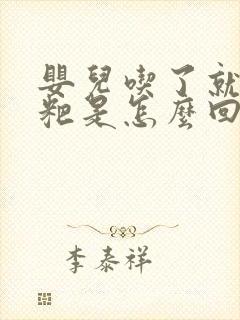 嬰兒喫了就
粑是怎麼回
李泰祥